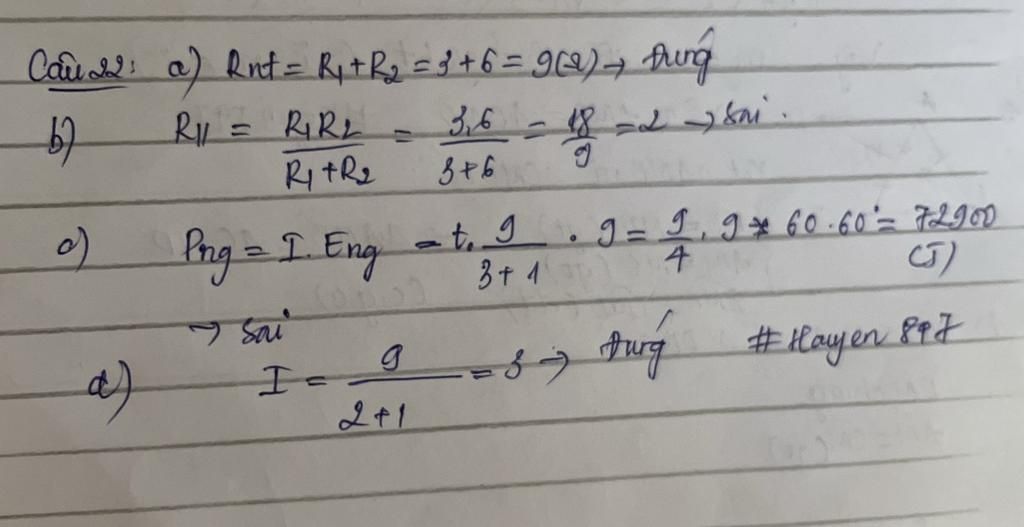 Câu 22: a) Rnt = R1 + R2 = 3 + 6 = 9(Ω) → đúng
b) R// = R1R2 / R1 + R2 = 3.6 / 3+6 = 18/9 = 2 → sai.
c) Png = I. Eng = t. 9 / 3+1 . 9 = 9/4 . 9 * 60.60 = 72900 (J)
→ sai
d) I = 9 / 2+1 = 3 → đúng
# Hayen 897